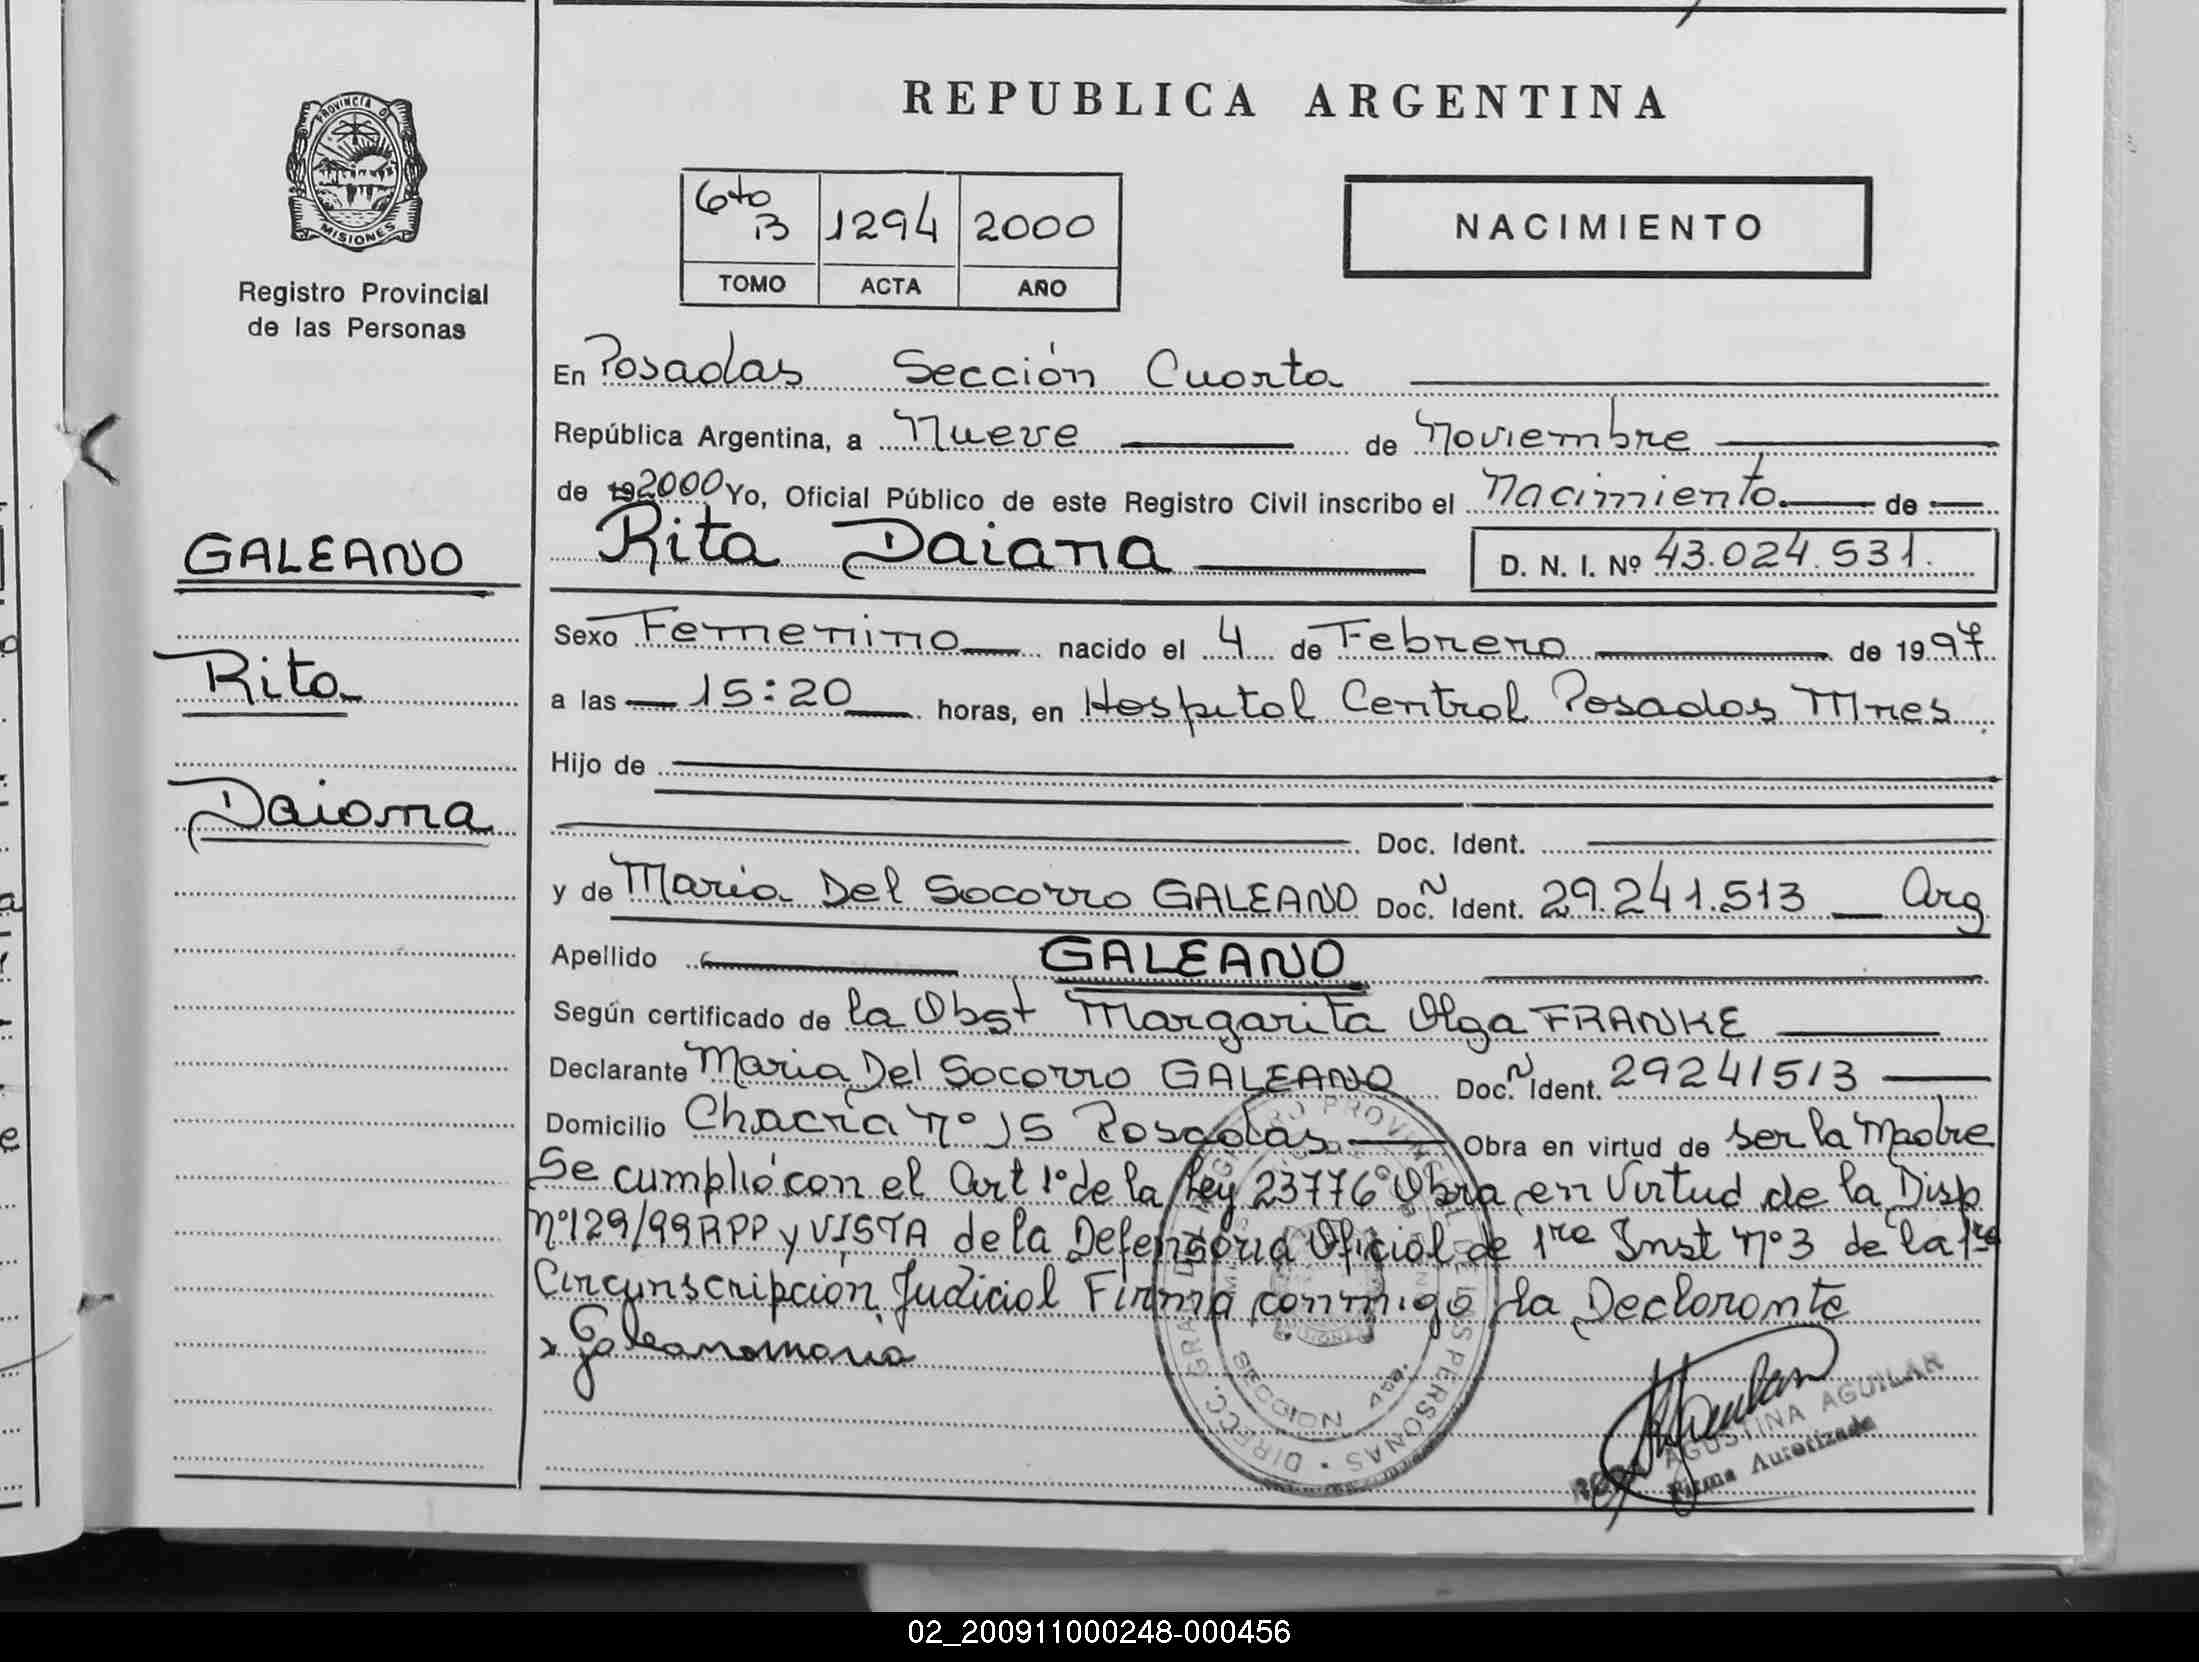 REPUBLICA ARGENTINA
PROVINCIA D
MISIONES
Registro Provincial
de las Personas
6to B 1294 2000
TOMO ACTA AÑO
NACIMIENTO
En Posadas Sección Cuarta
República Argentina, a Nueve de Noviembre
de 19 2000 Yo, Oficial Público de este Registro Civil inscribo el Nacimiento de
Rita Daiana D. N. I. Nº 43.024.531.
GALEANO
Rita
Daiana
Sexo Femenino nacido el 4 de Febrero de 1997
a las 15:20 horas, en Hospital Central Posadas Mnes
Hijo de
Doc. Ident.
y de Maria Del Socorro GALEANO Doc. N Ident. 29.241.513 Arg
Apellido GALEANO
Según certificado de la Obst Margarita Olga FRANKE
Declarante Maria Del Socorro GALEANO Doc. N Ident. 29241513
Domicilio Chacra nº 15 Posadas Obra en virtud de ser la Madre
Se cumplió con el Art 1º de la Ley 23776 Obra en Virtud de la Disp
nº129/99 RPP y VISTA de la Defensoria Oficial de 1ra Inst nº 3 de la 1ra
Circunscripción Judicial Firma conmigo la Declarante
x Galeano maria
SECCION 4ta.
AGUSTINA AGUILAR
Firma Autorizada
02_200911000248-000456